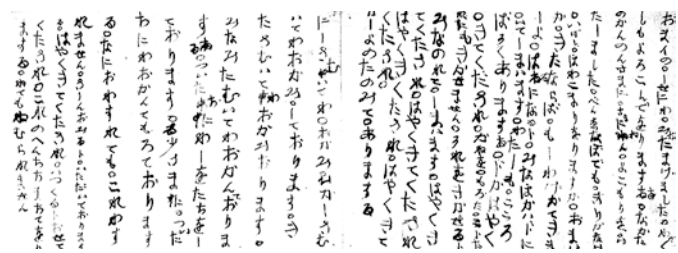 おまイの。しせにわ。みなたまけました。わたく
しもよろこんでをりまする。なかた
のかんのんさまに。さまにねん。よこもりを。いたし
ました。べん京なぼでも。きりかない。
いぼし。ほわこまりをりますか。おまい
か。きたならば。もしわけかてきま
しよ。はるになるト。みなほかいドに
いてしまいます。わたしも。こころ
ぼそくありまする。ドカはやく
きてくたされ。かねを。もろた。こト
たれにもきかせません。それをきかせるト
みなのれて。しまいます。はやくき
てくたされ。はやくきてくたされ
はやくきてくたされ。はやくきて
くたされ。いしよのたのみて。ありまする
にしさむいてわ。おかみ。ひかしさむ
いてわおかみ。しております。き
たさむいてわおかみおります。
みなみたむいてわおかんでおりま
する。ついたちにわしをたちをし
ております。ゐ少さまに。ついた
ちにわおかんてもろておりま
する。なにおわすれても。これわす
れません。さしんおみるト。いただいておりまする
はやくきてくたされ。いつくるトおせて
くたされ。これのへんちちまちてをり
まする。ねてもねむられません